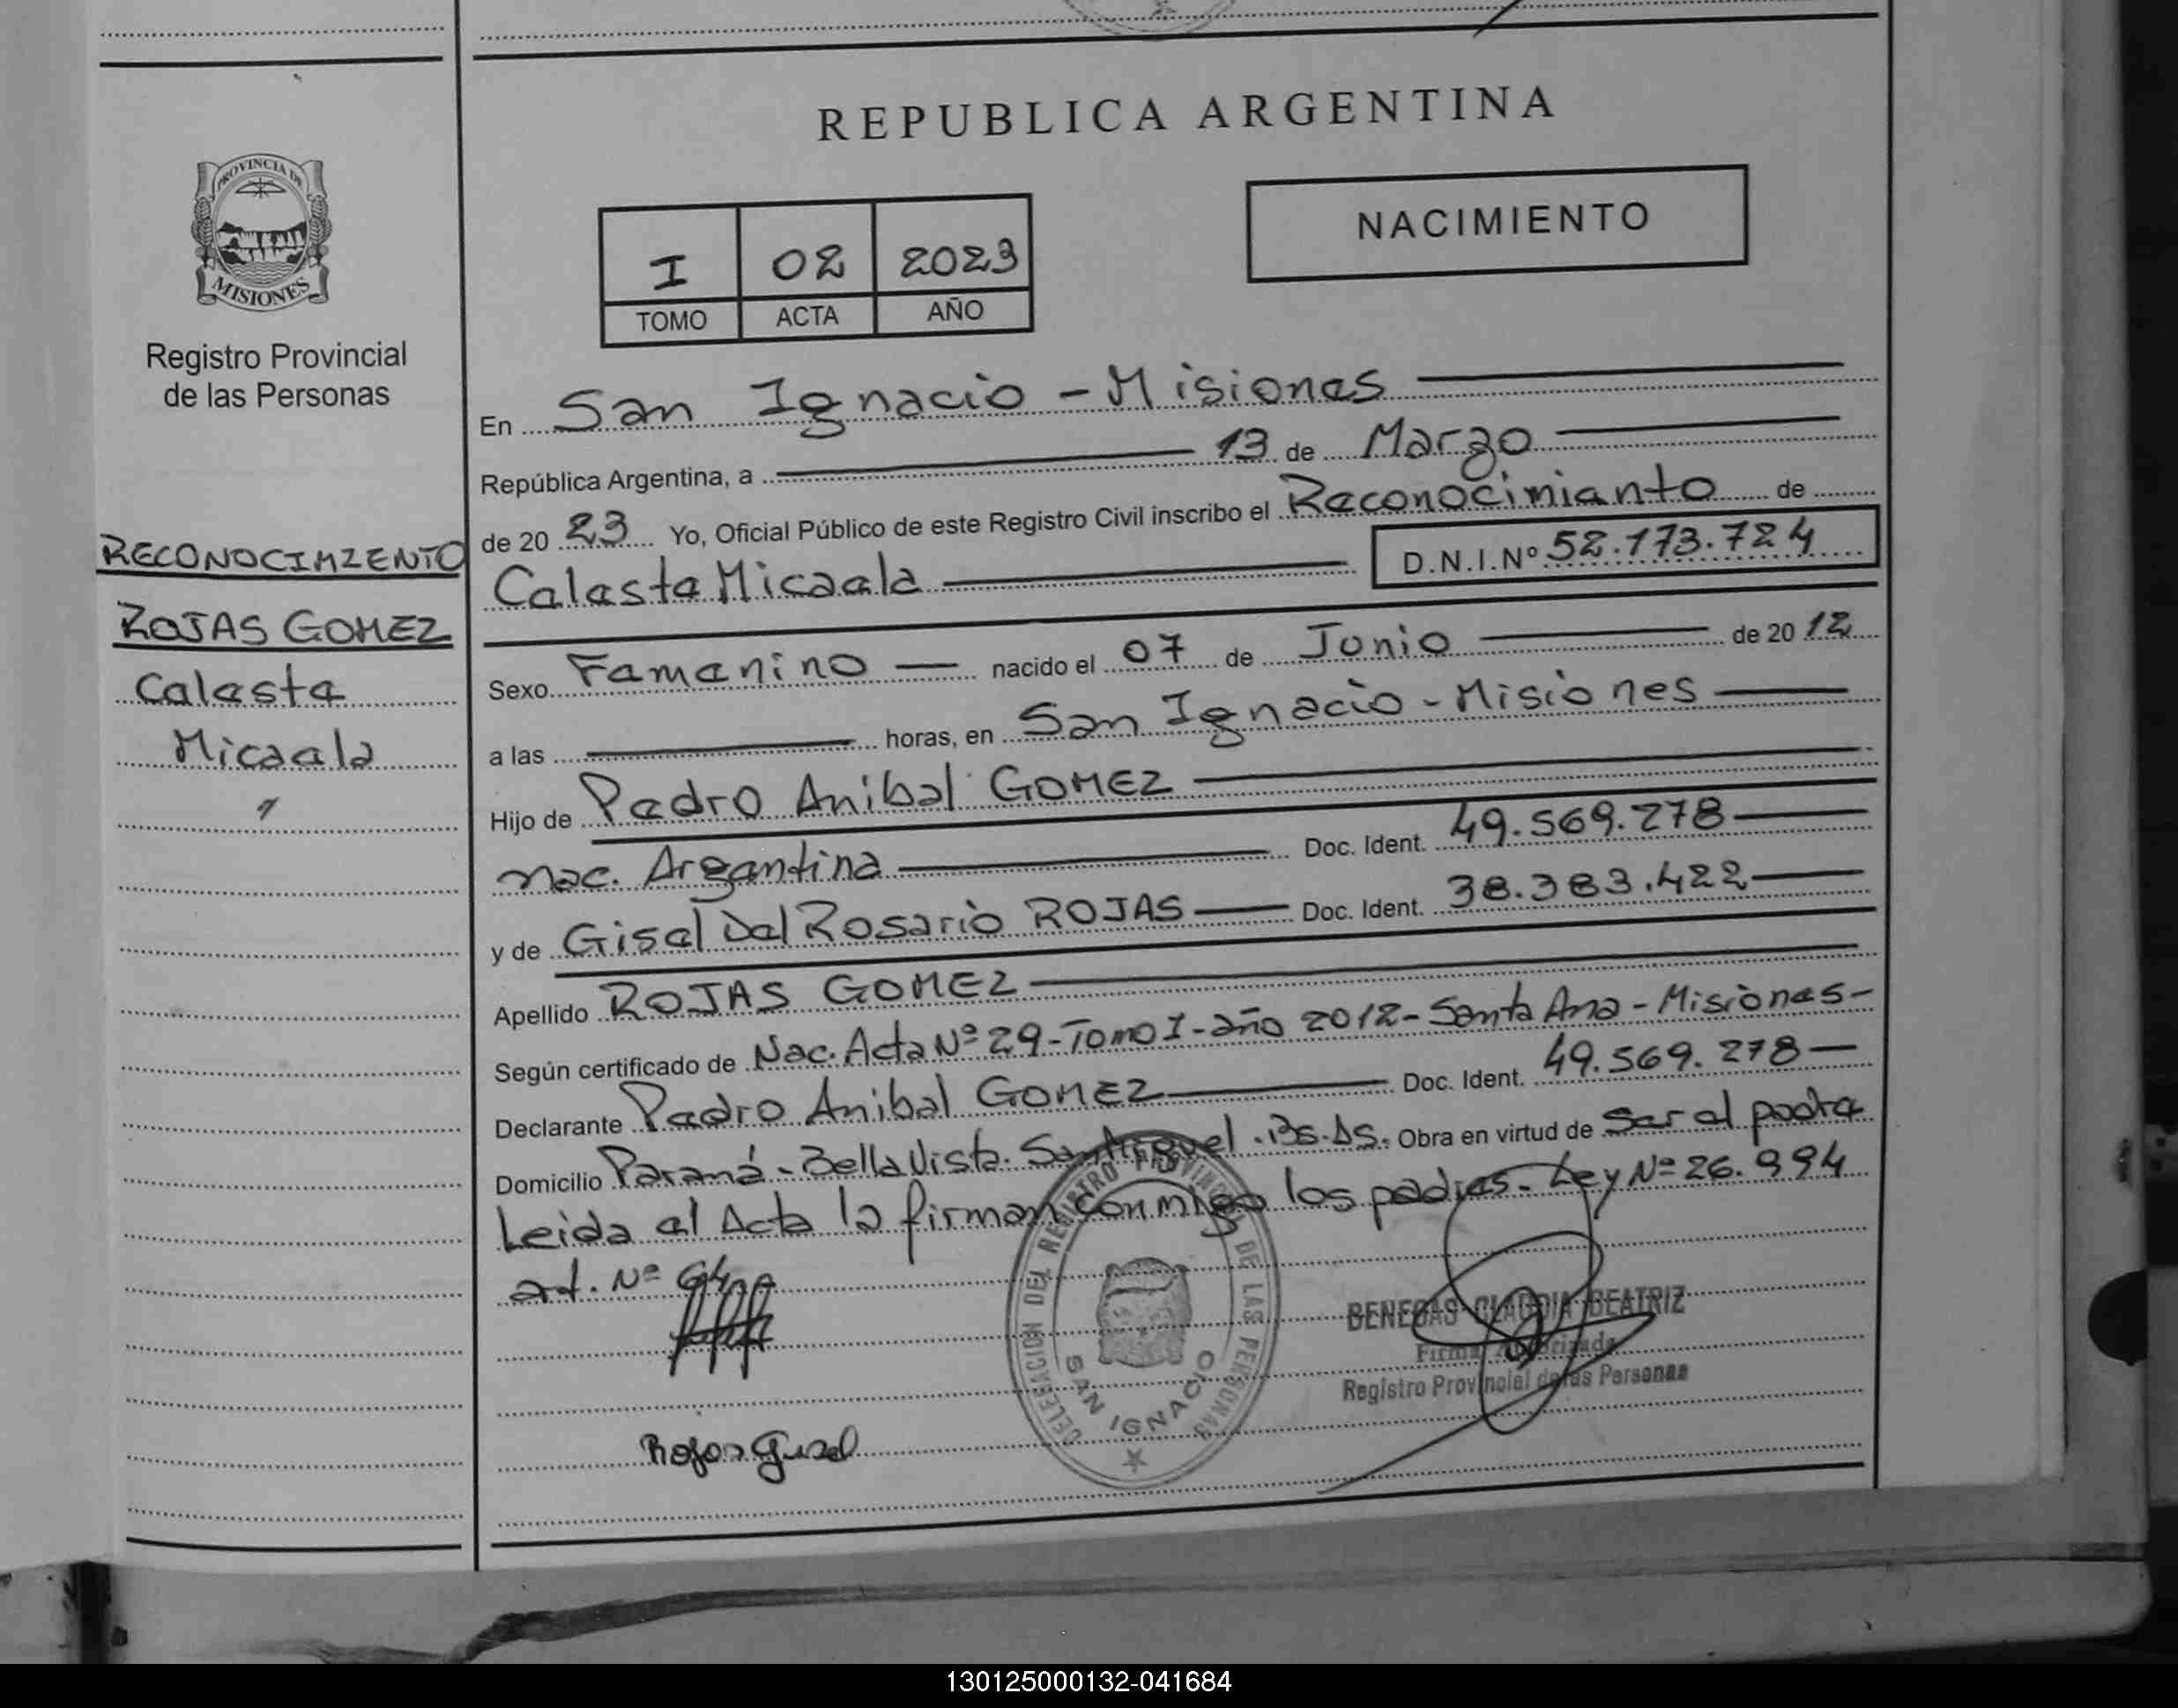 REPUBLICA ARGENTINA
PROVINCIA DE
MISIONES
Registro Provincial
de las Personas
NACIMIENTO
I 02 2023
TOMO ACTA AÑO
RECONOCIMIENTO
ROJAS GOMEZ
Celeste
Micaela
En San Ignacio - Misiones
República Argentina, a 13 de Marzo
de 20 23 Yo, Oficial Público de este Registro Civil inscribo el Reconocimiento de
Celeste Micaela D.N.I.Nº 52.173.724
Sexo Femenino nacido el 07 de Junio de 20 12
a las horas, en San Ignacio - Misiones
Hijo de Pedro Anibal GOMEZ
nac. Argentina Doc. Ident. 49.569.278
y de Gisel Del Rosario ROJAS Doc. Ident. 38.383.422
Apellido ROJAS GOMEZ
Según certificado de Nac. Acta Nº 29 - Tomo I - año 2012 - Santa Ana - Misiones -
Declarante Pedro Anibal GOMEZ Doc. Ident. 49.569.278
Domicilio Paraná - Bella Vista. San Miguel . Bs. As. Obra en virtud de ser el padre
Leida el Acta la firman conmigo los padres. Ley Nº 26.994
art. Nº 64
DELEGACION DEL REGISTRO PROVINCIAL DE LAS PERSONAS
SAN IGNACIO
BENEGAS CLAUDIA BEATRIZ
Firma Autorizada
Registro Provincial de las Personas
Rojas Gisel
130125000132-041684